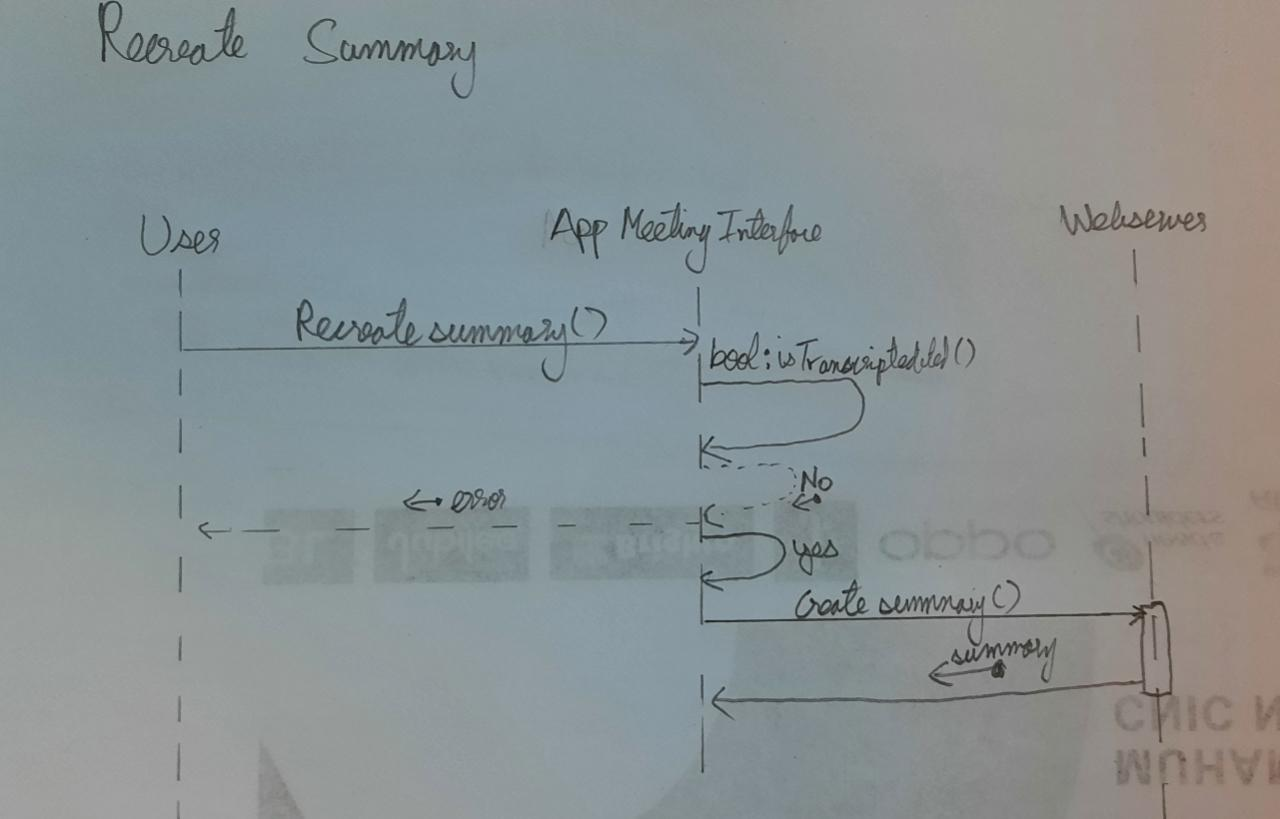 Recreate Summary
User
App Meeting Interface
Webserver
Recreate summary()
bool: isTranscriptedited()
No
error
yes
Create summary()
summary
oddo
CNIC N
MUHAM